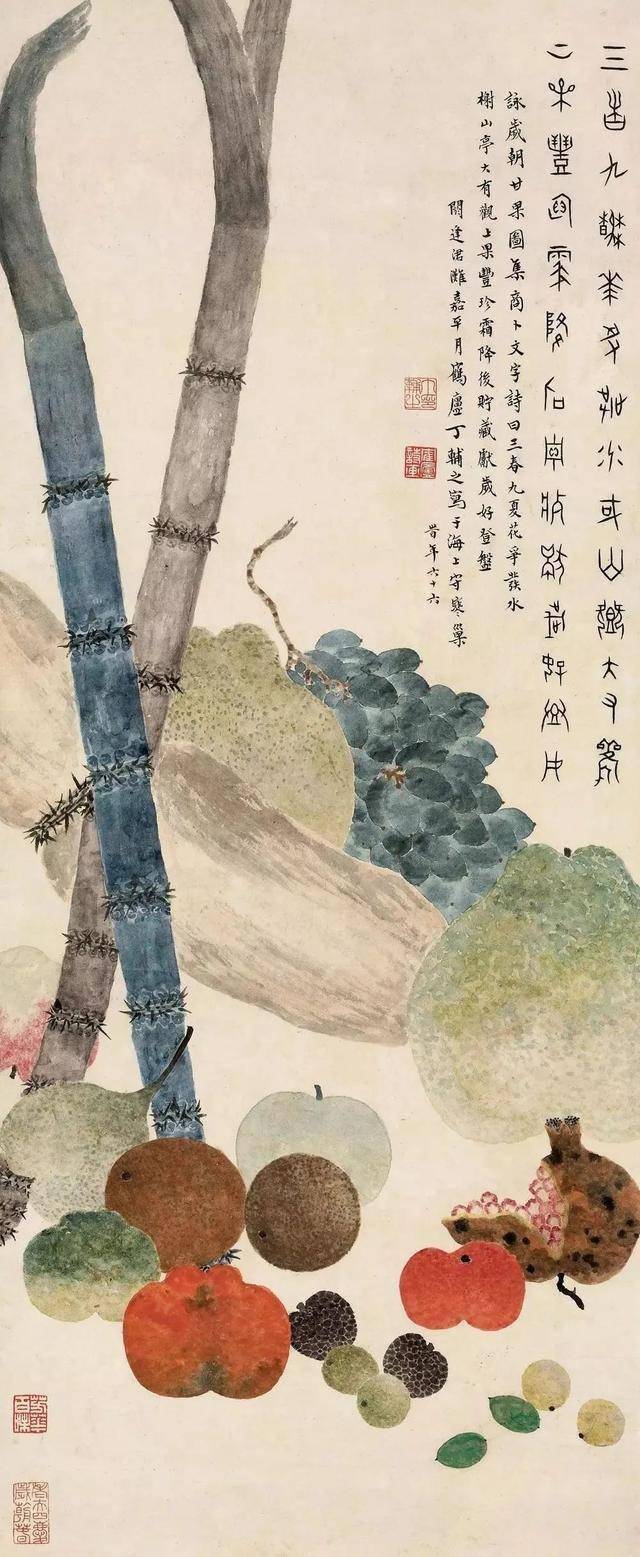 三春九夏花爭發水榭山亭大有觀
上果豐珍霜降后貯藏獻歲好登盤
詠歲朝甘果圖集商卜文字詩曰三春九夏花爭發水
榭山亭大有觀上果豐珍霜降後貯藏獻歲好登盤
閼逢涒灘嘉平月鶴廬丁輔之寫于海上守寒巢
旹年六十六